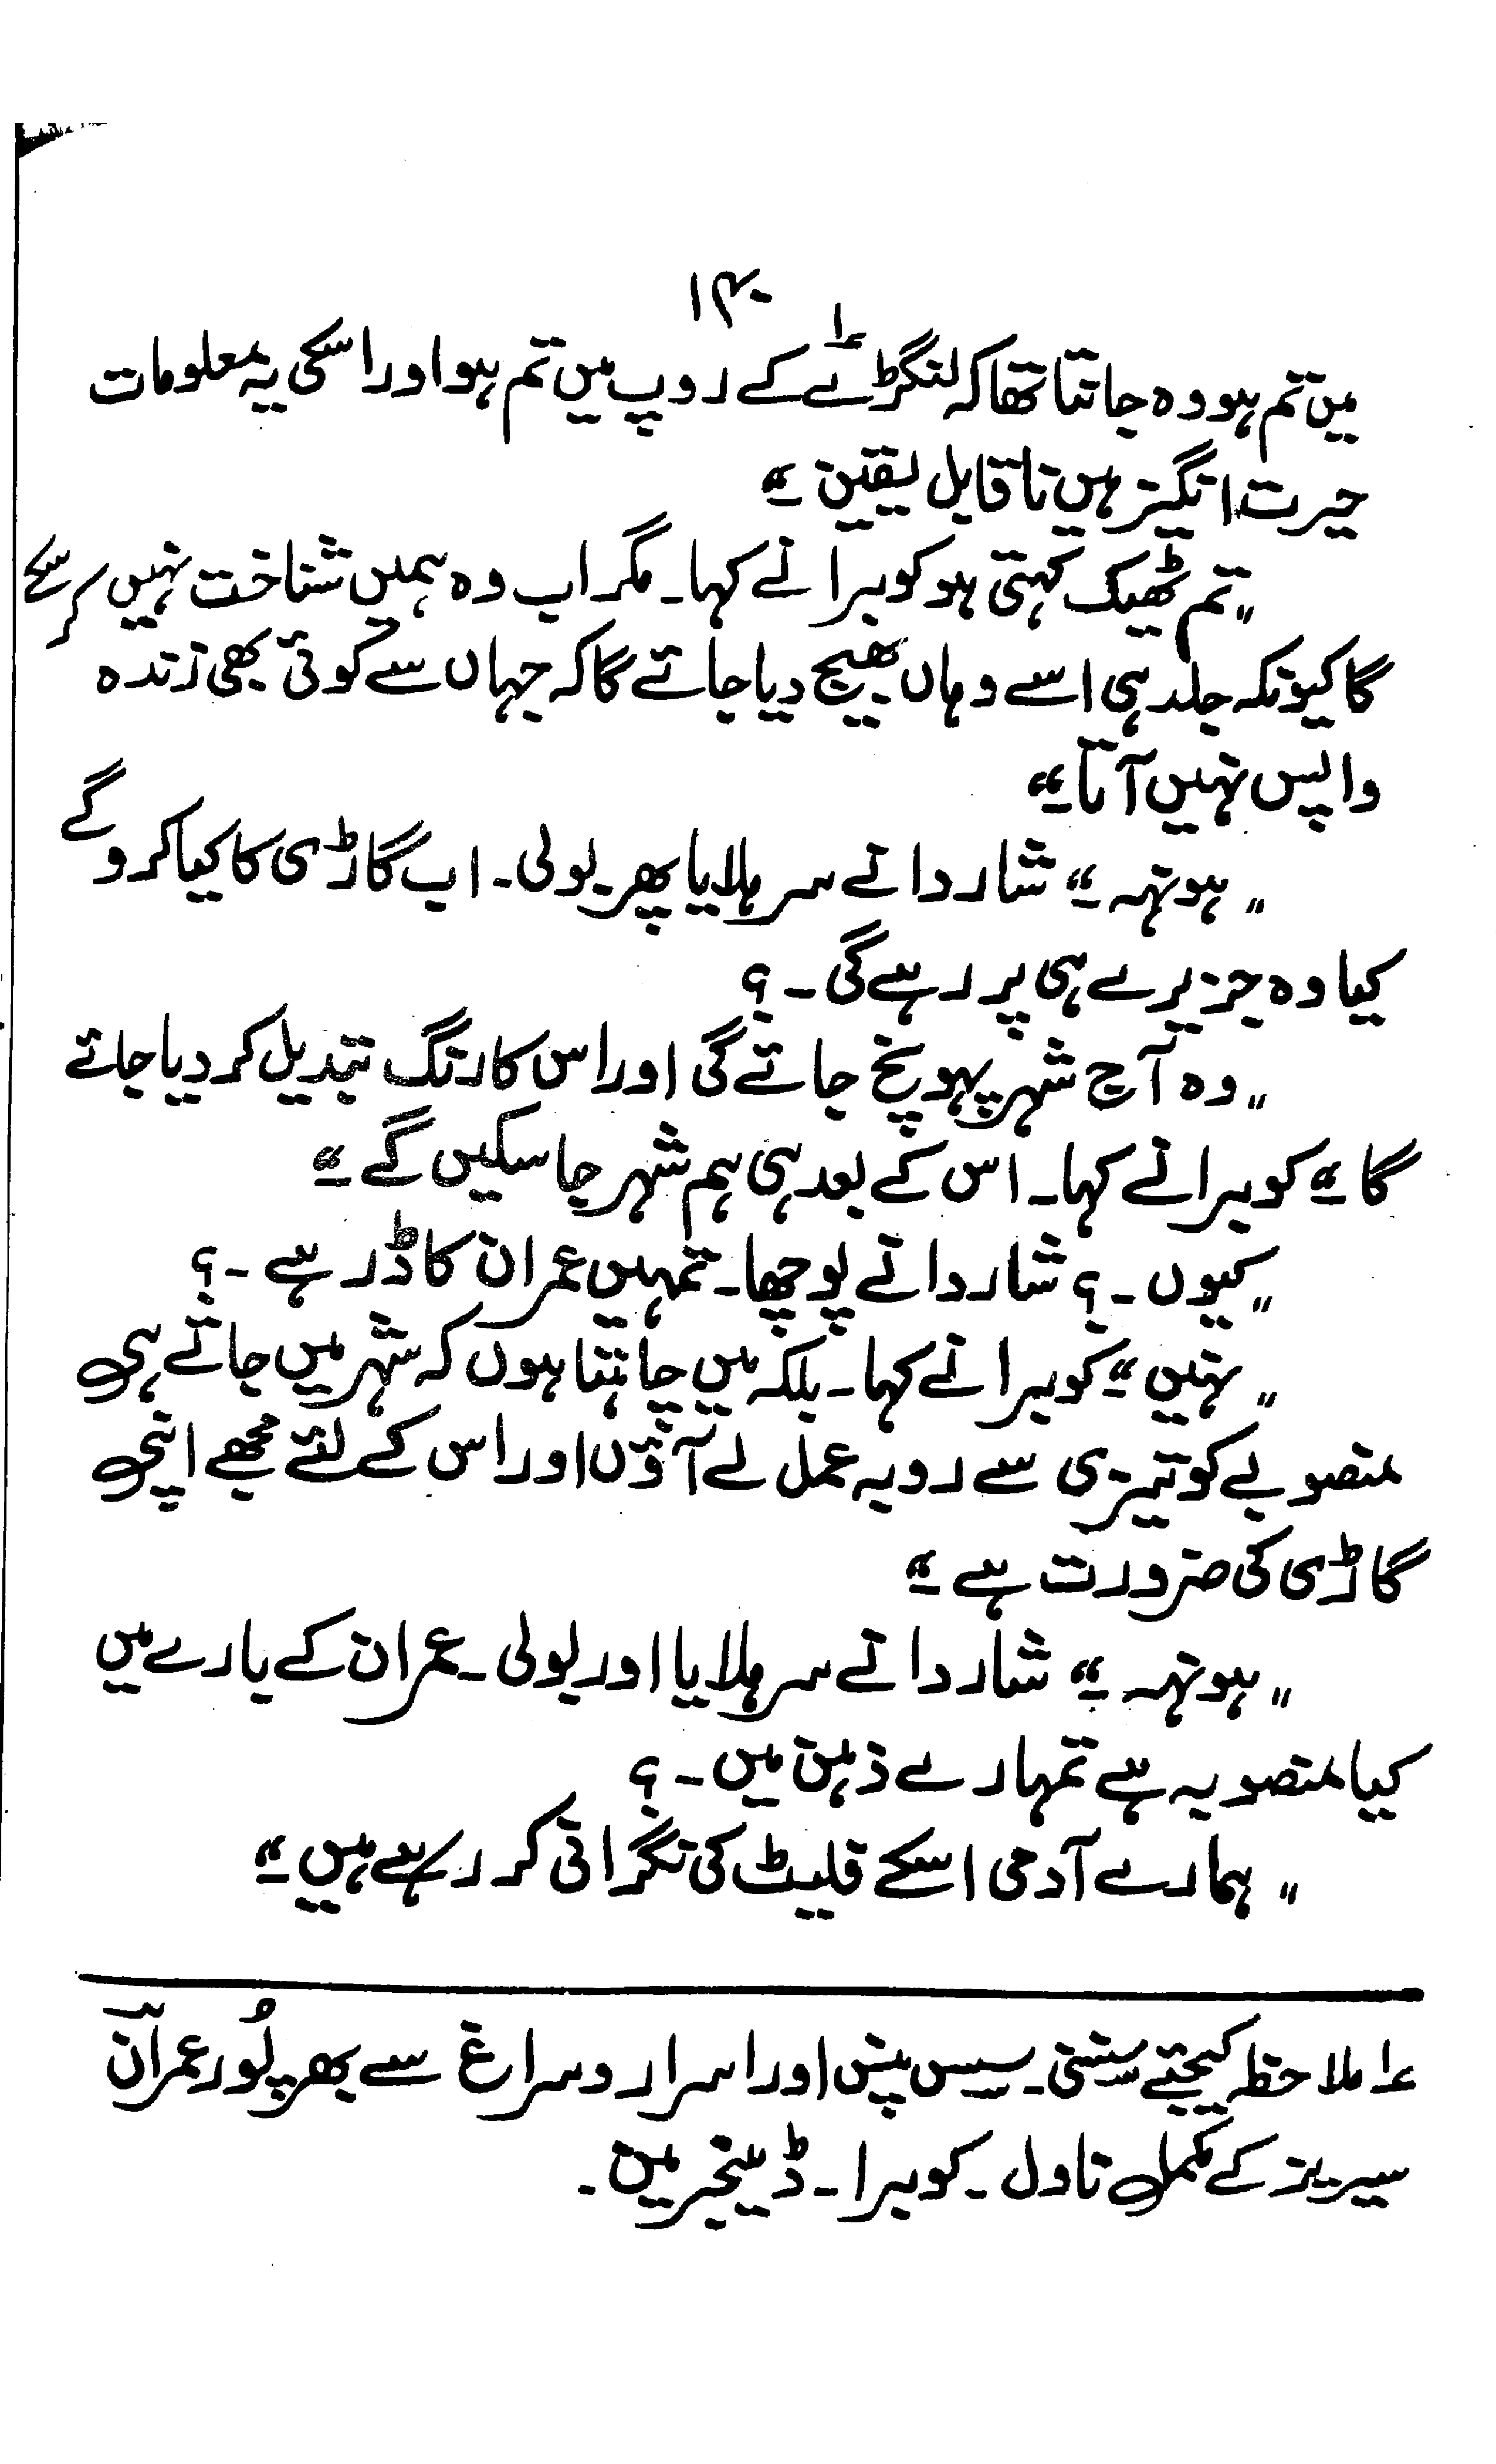 ۱۳۰
میں تم ہو وہ جانتا تھا کہ لنگڑے کے روپ میں تم ہو اور اسکی یہ معلومات
حیرت انگیز ہیں ناقابل یقین ۔"
"تم ٹھیک کہتی ہو کوبرا نے کہا۔ مگر اب وہ ہمیں شناخت نہیں کر سکے
گا کیونکہ جلد ہی اسے وہاں بھیج دیا جائے گا کہ جہاں سے کوئی بھی زندہ
واپس نہیں آتا۔"
"ہونہہ ۔" شاردا نے سر ہلایا پھر بولی۔ اب گاڑی کا کیا کرو گے
کیا وہ جزیرے ہی پر رہے گی ۔؟
"وہ آج شہر پہونچ جائے گی اور اس کا رنگ تبدیل کر دیا جائے
گا۔" کوبرا نے کہا۔ اس کے بعد ہی ہم شہر جا سکیں گے ۔"
"کیوں ۔؟ شاردا نے پوچھا۔ تمہیں عمران کا ڈر ہے ۔؟
"نہیں ۔" کوبرا نے کہا۔ بلکہ میں چاہتا ہوں کہ شہر میں جاتے ہی
منصوبے کو تیزی سے روبہ عمل لے آؤں اور اس کے لئے مجھے اپنی
گاڑی کی ضرورت ہے ۔"
"ہونہہ ۔" شاردا نے سر ہلایا اور بولی۔ عمران کے بارے میں
کیا منصوبہ ہے تمہارے ذہن میں ۔؟
"ہمارے آدمی اسکے فلیٹ کی نگرانی کر رہے ہیں ۔"
؏۱ ملاحظہ کیجئے سنسنی۔ سسپنس اور اسرار و سراغ سے بھرپُور عمران
سیریز کے مکمل ناول۔ کوبرا۔ ڈینجر میں۔